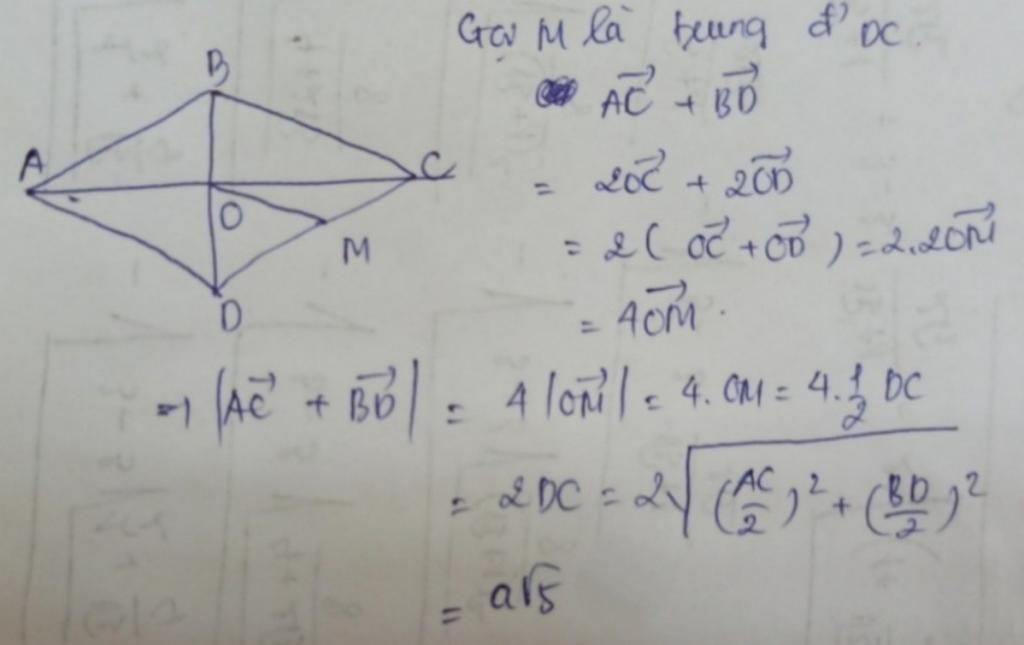 Gọi M là trung đ' DC.
B
A
C
O
M
D
\overrightarrow{AC} + \overrightarrow{BD}
= 2\overrightarrow{OC} + 2\overrightarrow{OD}
= 2(\overrightarrow{OC} + \overrightarrow{OD}) = 2.2\overrightarrow{OM}
= 4\overrightarrow{OM}.
⇒ |\overrightarrow{AC} + \overrightarrow{BD}| = 4|\overrightarrow{OM}| = 4.OM = 4.\frac{1}{2} DC
= 2DC = 2\sqrt{(\frac{AC}{2})^2 + (\frac{BD}{2})^2}
= a\sqrt{5}